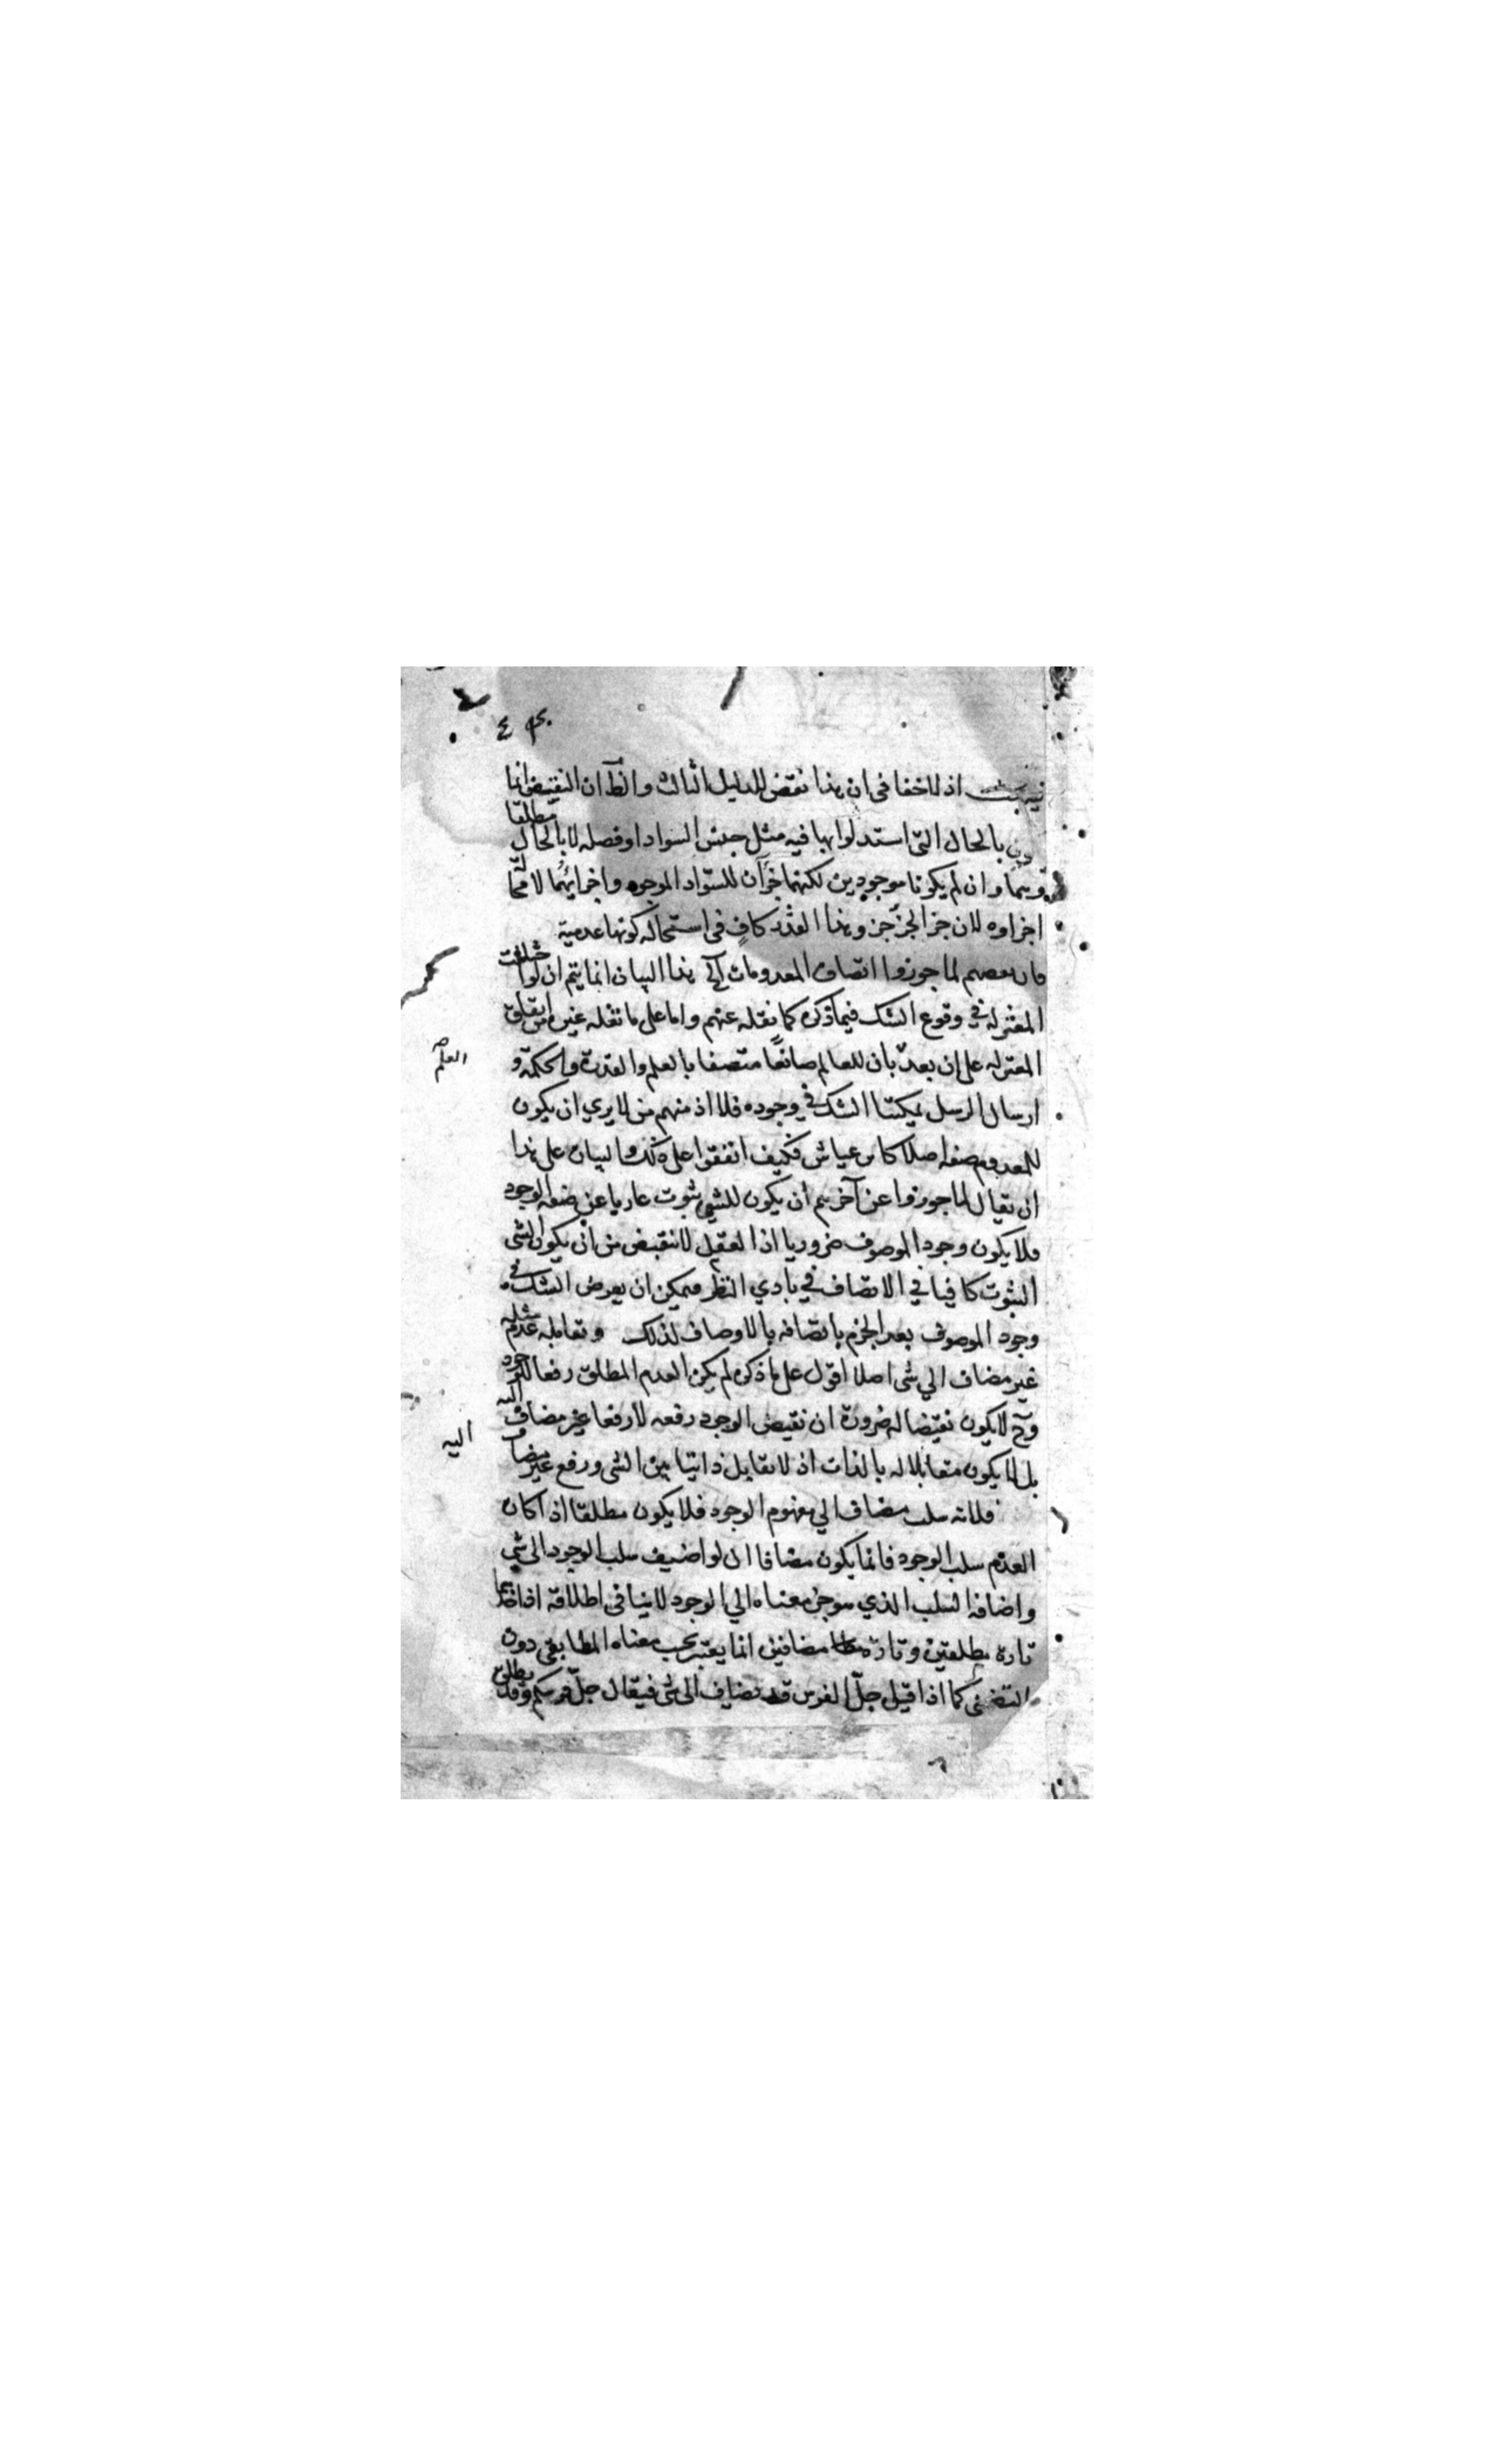 فيه بحث اذ لا خفا فى ان هذا نقض للدليل الثالث والظ ان النقيض انما
يكون بالحال التى استدلوا بها فيه مثل جنس السواد او فصله لا بالحال مطلقا
وهما وان لم يكونا موجودين لكنهما جزآن للسواد الموجود واجزائهما لا محالة
اجزاوه لان جز الجز جز وهذا القدر كاف فى استحالة كونها عدمية
فان بعضهم لما جوزوا اتصاف المعدومات الخ هذا البيان انما يتم ان لو اختلفت
المعتزله في وقوع الشك فيما ذكره كما نقله عنهم واما على ما نقله غيره من اتفاق
المعتزله على ان بعد العلم بان للعالم صانعا متصفا بالعلم والقدرة والحكمة و
ارسال الرسل يمكننا الشك في وجوده فلا اذ منهم من لا يري ان يكون
للمعدوم صفه اصلا كابن عياش فكيف اتفقوا على ذلك والبيان على هذا
ان يقال لما جوزوا عن آخرهم ان يكون للشي ثبوت عاريا عن صفه الوجود
فلا يكون وجود الموصوف ضروريا اذ العقل لا ينقبض من ان يكون الشى
الثبوت كافيا في الاتصاف في بادي النظر فيمكن ان يعرض الشك في
وجود الموصوف بعد الجزم باتصافه بالاوصاف لذلك وتقابله عدم مثله
غير مضاف الي شى اصلا اقول على ما ذكره لم يكن العدم المطلق رفعا للوجود
وح لا يكون نقيضا له ضرورة ان نقيض الوجود رفعه لا رفعا غير مضاف اليه
بل لا يكون متقابلا له بالذات اذ لا تقابل ذاتيا بين الشى ورفع غير مضاف
اليه
فلانه سلب مضاف الي مفهوم الوجود فلا يكون مطلقا اذا كان
العدم سلب الوجود فانما يكون مضافا ان لو اضيف سلب الوجود الى شي
واضافة السلب الذي هو جزء معناه الي الوجود لا ينافى اطلاقه اذ اخذهما
تارة مطلقين وتارة مضافين انما يعتبر بحسب معناه المطابقى دون
التضمنى كما اذا قيل جل الفرس قد يضاف الى شى فيقال جل فرسكم وقد يطلق